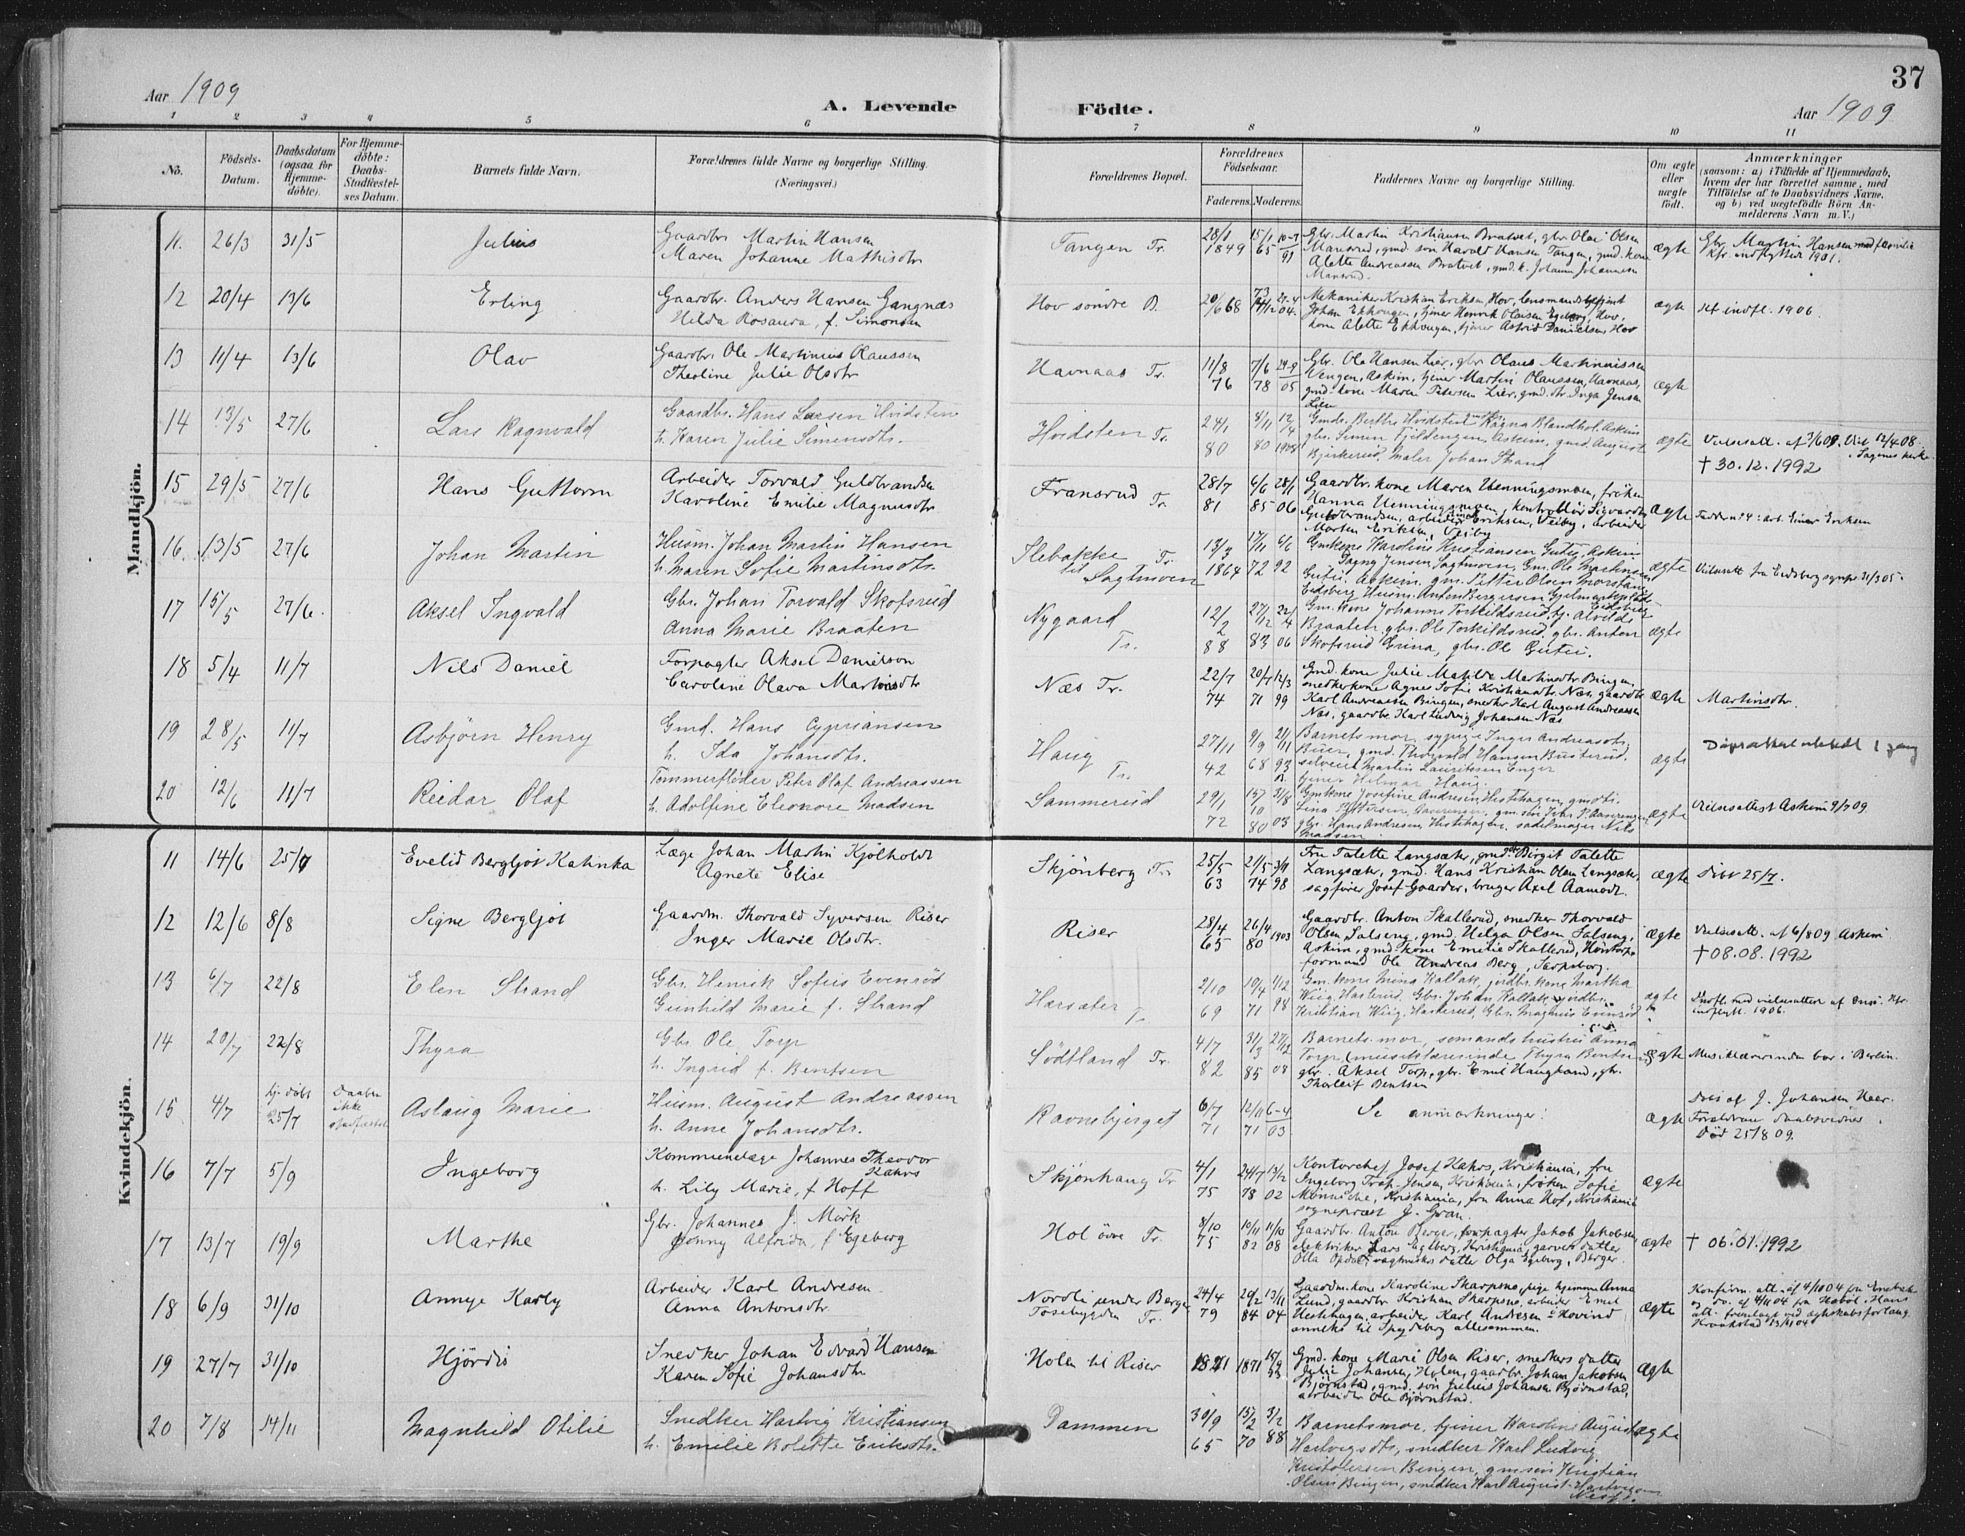 37
Aar 1909
A. Levende Födte.
Aar 1909
1 2 3 4 5 6 7 8 9 10 11
No.
Födsels-Datum.
Daabsdatum (ogsaa for Hjemme-döbte).
For Hjemme-döbte: Daabs-Stadfæstel-ses Datum.
Barnets fulde Navn.
Forældrenes fulde Navne og borgerlige Stilling.
(Næringsvei.)
Forældrenes Bopæl.
Forældrenes Födselsaar.
Faderens. Moderens.
Faddernes Navne og borgerlige Stilling.
Om ægte eller uægte födt.
Anmærkninger
(saasom: a) i Tilfælde af Hjemmedaab,
hvem der har forrettet samme, med
Tilföielse af to Daabsvidners Navne,
og b) ved uægtefödte Börn An-
melderens Navn m. V.)
Mandkjön.
11. 26/3 31/5 Julius
Gaardbr. Martin Hansen
Maren Johanne Mathisdtr
Tangen Tr.
28/1 1849 15/1 65
Gbr. Martin Kristiansen Bratvet, gbr. Olai Olsen
Mansrud, gmd. søn Harald Hansen Tangen, gmd. kone
Alette Andreassen Bratvet, gmd. k. Johanne Johannesen
Mansrud.
ægte
Gbr. Martin Hansen med familie
Kfr. indflyttet 1901.
12 20/4 13/6 Erling
Gaardbr. Anders Hansen Gangnæs
Hilda Rosaura, f. Simonsen
Hov søndre B.
20/6 68
Mekaniker Kristian Eriksen Hov, lensmandsbetjent
Johan Ekhougen, tjener Henrik Olaisen Egeberg, Hov,
kone Alette Ekhougen, tjener Astrid Danielsen, Hov
ægte
Kf indfl. 1906.
13 11/4 13/6 Olav
Gaardbr. Ole Martinius Olaussen
Theoline Julie Olsdtr
Havnaas Tr.
11/8 76 7/6 78 05
Gbr. Ole Hansen Lier, gbr. Olaus Martinniussen
Vengen, Askim, tjener Martin Olaussen, Havnaas,
gmd. kone Maren Petersen Lier, gmd. dtr. Inga Jensen
Lier
ægte
14 13/5 27/6 Lars Ragnvald
Gaardbr. Hans Larsen Hvidsten
h. Karen Julie Simensdtr.
Hvidsten Tr.
24/1 80 8/11 80 12/4 1908
Gmdr. Berthe Hvidsten, Ragna Blandhol, Askim
gbr. Simen Fjeldengen, Askim, gmd August
Bjerkerud, maler Johan Strand
ægte
Vielsesatt. af 3/6 09. Viet 12/4 08. i Sagenes kirke
† 30.12.1992
15 29/5 27/6 Hans Guttorm
Arbeider Torvald Guldbrandsen
Karoline Emilie Magnusdtr
Fransrud Tr.
28/7 81 6/6 85 28/1 06
Gaardbr. kone Maren Henningsmoen, frøken
Hanna Henningsmoen, kontrollør Sigvardt
Guldbrandsen, arbeider Einar Eriksen, Veiby, arbeider
Morten Eriksen, Veiby
ægte
Fadder no 4: arb. Einar Eriksen
16 13/5 27/6 Johan Martin
Husm. Johan Martin Hansen
h. Maren Sofie Martinsdtr.
Slebakke Tr.
til Sagtmoen
13/3 1864 17/11 72 6/6 92
ægte
Vielsesatt fra Eidsberg sognepr 31/3 05.
17 15/5 27/6. Aksel Ingvald
Gbr. Johan Torvald Skofsrud
Anna Marie Braaten
Nygaard Tr.
12/2 88 27/12 83 22/4 06
Gm. kone Johanne Torkildsrud, tj. Alvilde
Braaten, gbr. Ole Torkildsrud, gbr. Anton
Skofsrud Grina, gbr. Ole Gutu.
ægte
18 5/4 11/7 Nils Daniel
Forpagter Aksel Danielson
Caroline Olava Martinsdtr
Næs Tr.
22/7 74 20/7 71 12/3 99
Gmd. kone Julie Matilde Martinsdtr Bingen,
snedkerkone Agnes Sofie Kristiansdtr Næs, gaardbr.
Karl Andreassen Bingen, snedker Karl August Andreassen
Næs, gaardbr. Karl Ludvig Johansen Næs
ægte
Martinsdtr.
19 28/5 11/7 Asbjörn Henry
Gmd. Hans Cypriansen
h. Ida Johansdtr.
Haug Tr.
27/11 42 9/9 68 21/11 93
Barnets mor, sypige Inger Andreasdtr,
Buer, gmd. Thorvald Hansen Busterud,
Martin Lauritzsen Enger
tjener Hilmar Haug.
ægte
Daapsattest utstedt 1 gang
20 12/6 11/7 Reidar Olaf
Tømmerfløder Peter Olaf Andreassen
h. Adolfine Eleonore Madsen
Sammerud
29/1 72 15/10 80 21/8 03
Gmkone Josefine Andresen Hestehagen, gmdtr.
gbr. Hans Andresen Hestehagen, sadelmager Nils
Madsen
ægte
Vielsesattest Askim 9/7 09
Kvindekjön.
11 14/6 25/7 Evelid Bergljot Katinka
Læge Johan Martin Kjölholdt
Agnete Elise
Skjønberg Tr.
25/5 63 21/5 74 3/11 98
Fru Talette Langsæter, gmd. dtr Birgit Talette
Langsæter, gmd. Hans Kristian Olsen Langsæter,
sagfører Josef Gaarder, bruger Axel Aamodt.
ægte
Döbt 25/7.
12 12/6 8/8 Signe Bergljot
Gaardm. Thorvald Syversen Riser
Inger Marie Olsdtr.
Riser
28/4 65 26/4 80 1903
Gaardbr. Anton Skallerud, snedker Thorvald
Olsen Salseng, gmd. Helga Olsen Salseng,
Askim, gmd. kone Emilie Skallerud, Hðntorp
formand Ole Andreas Berg, Sarpsborg.
ægte
Vielsesatt. af 6/8 09 Askim
† 08.08.1992
13 6/7 22/8 Elen Strand
Gbr. Henrik Sofus Evensød
Gunhild Marie f. Strand
Harsæter Tr.
2/10 69 10/4 71 1/12 98
Gm. kone Mina Kallak, jordbr. kone Martha
Wiig, Hasterud, Gbr. Johan Kallak, jordbr.
Kristian Wiig, Hasterud, Gbr. Magnus Evensød
ægte
Indfl. med vielsesattest af Onsø. Kfr.
indflytt. 1906.
14 20/7 22/8 Thyra
Gbr. Ole Torp
h. Ingrid f. Bentsen
Södtland Tr.
4/7 82 31/3 85 27/12 08
Barnets mor, sømands hustru Anna
Torp, musiklærerinde Thyra Bentsen,
gbr. Aksel Torp, gbr. Emil Haugland, gbr.
Thorleif Bentsen
ægte
Musiklærerinden bor i Berlin.
15 4/7 hj. døbt 25/7 Daaben ikke stadfæstet
Aslaug Marie
Husm. August Andreassen
h. Anne Johansdtr.
Ravnebjerget
6/7 71 12/11 71 6-4 03
Se anmærkninger:
ægte
Døbt af J. Johansen Heer.
Forældrene daabsvidner.
Død 25/8 09.
16 7/7 5/9 Ingeborg
Kommunelæge Johannes Theodor Kahrs
h. Lily Marie, f Hoff
Skjønhaug Tr
4/1 75 24/7 78 13/2 02
Kontorchef Josef Kahrs, Kristiania, fru
Ingeborg Trap-Jensen, Kristiania, frøken Sofie
Mønniche, Kristiania, fru Anna Hof, Kristiania
sogneprest J. Gran.
ægte
17 13/7 19/9 Marthe
Gbr. Johannes J. Mörk
Jonny Alfrida, f Egeberg
Hol övre Tr.
8/10 75 10/11 82 11/10 08
Gaardbr. Anton Berger, forpagter Jakob Jakobsen,
elektriker Lars Egeberg, Kristiania, garver datter
Olla Opdal, vagtmesters datter Olga Egeberg, Berger
ægte
† 06.01.1992
18 6/9 31/10 Annye Karly
Arbeider Karl Andresen
Anna Antonsdtr
Nordli under Berger
Tosebygden Tr.
24/4 79 29/2 84 13/11 04
Gaardm. kone Karoline Skarpsno, pige hjemme Anna
Lund, gaardbr. Kristian Skarpsno, arbeider Emil
Hestehagen, arbeider Karl Andresen i Hovind
anneks til Spydeberg allesammen.
ægte
19 27/7 31/10 Hjördis
Snedker Johan Edvard Hansen
Karen Sofie Johansdtr
Holen til Riser
1871 1871
Gmd. kone Marie Olsen Riser, snedkers datter
Julie Johansen, Holen, gaardbr. Johan Jakobsen
Bjørnstad, gmd. søn Julius Johansen Bjørnstad,
arbeider Ole Bjørnstad.
ægte
20 7/8 14/11 Magnhild Otilie
Snedker Hartvig Kristiansen
h. Emilie Bolette Eriksdtr.
Dammen
30/9 65 15/2 70 3/2 88
Barnets mor, tjener Karoline Augusta
Hartvigsdtr, snedker Karl Ludvig
Kristoffersen Bingen, gm. søn Kristian
Olsen Bingen, snedker Karl August Hartvigsen
Næs.
ægte